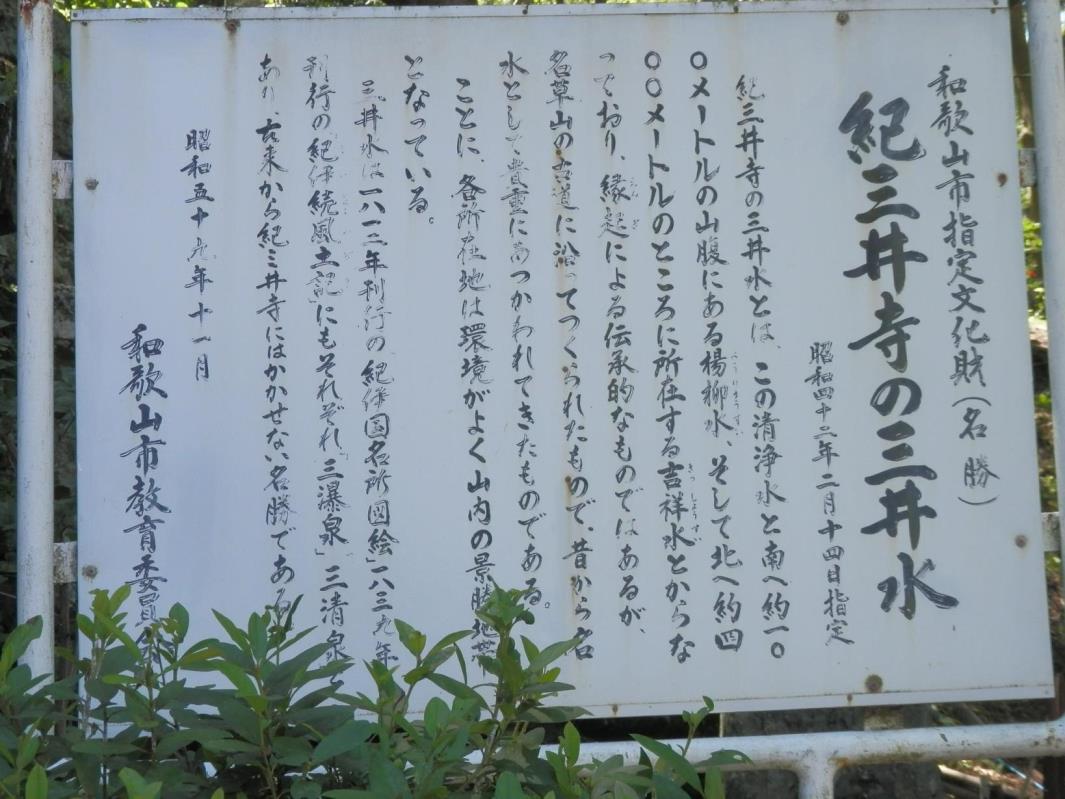 和歌山市指定文化財(名勝)
紀三井寺の三井水
昭和四十二年二月十四日指定
紀三井寺の三井水とは、この清浄水と南へ約一〇
〇メートルの山腹にある楊柳水、そして北へ約四
〇〇メートルのところに所在する吉祥水とからな
っており、縁起による伝承的なものではあるが、
名草山の古道に沿ってつくられたもので、昔から名
水として貴重にあつかわれてきたものである。
ことに、各所在地は環境がよく山内の景勝地帯
となっている。
三井水は一八一二年刊行の「紀伊国名所図絵」一八三九年
刊行の「紀伊続風土記」にもそれぞれ「三瀑泉」「三清泉
あり、古来から紀三井寺にはかかせない名勝である
昭和五十九年十一月
和歌山市教育委員